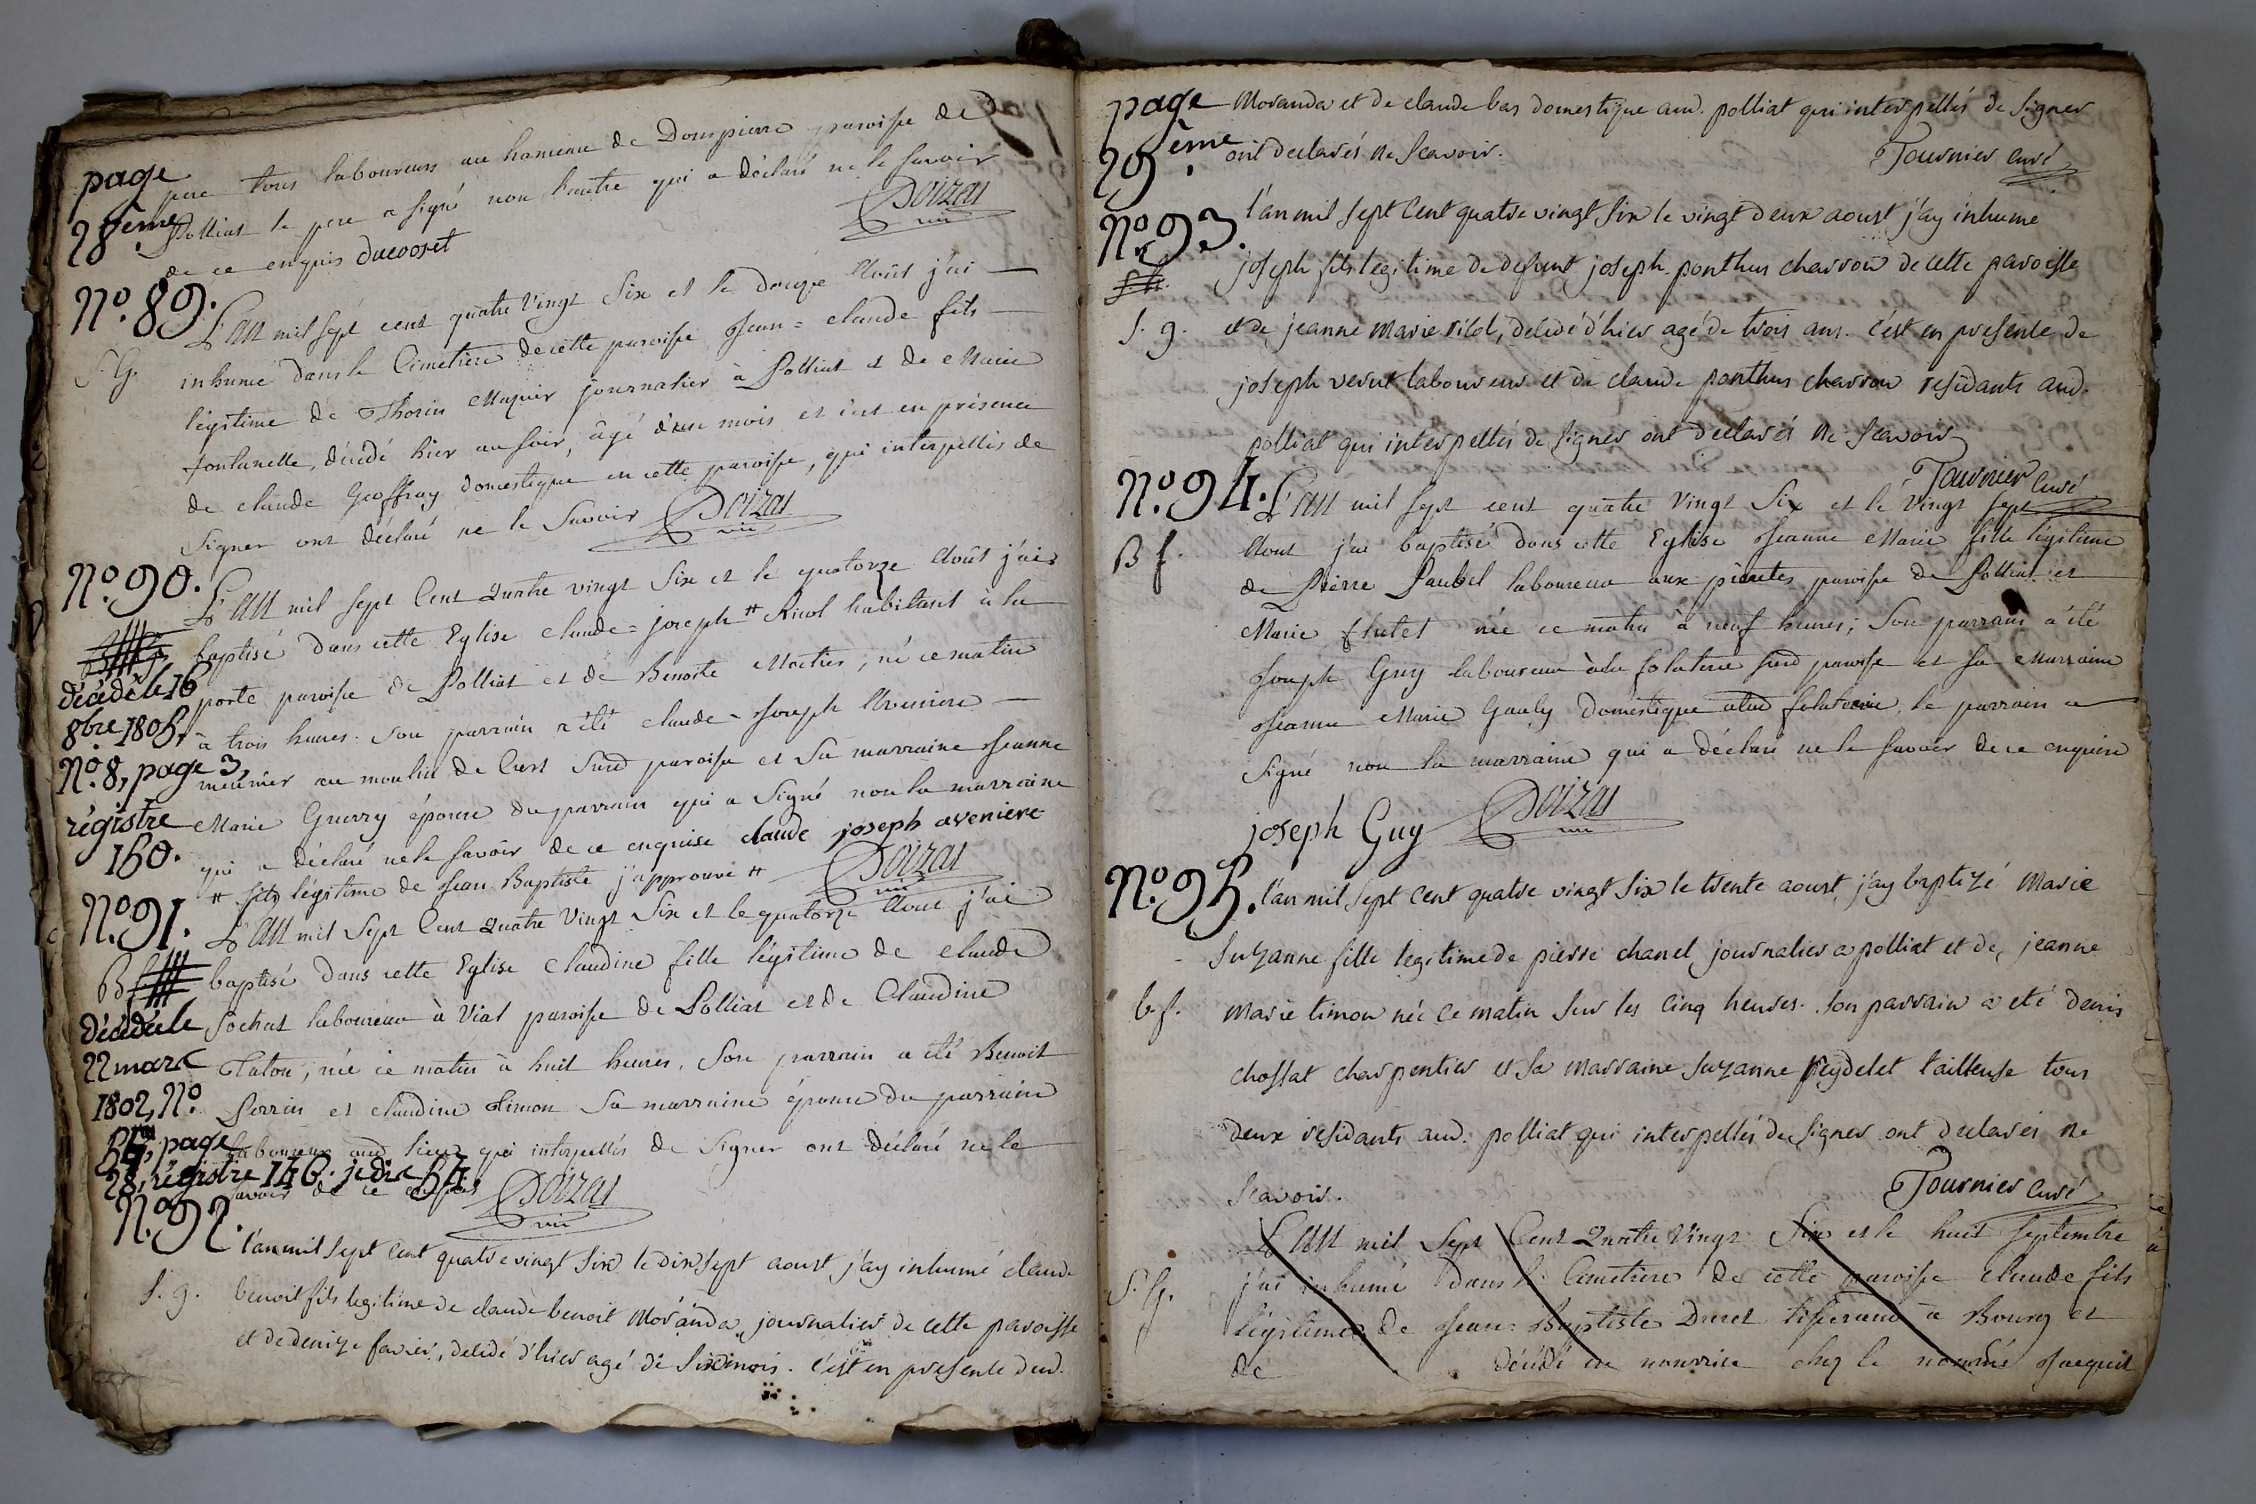 page
28ème
pere tous laboureurs au hameau de Dompierre paroisse de
Polliat le pere a signé non l'autre qui a déclaré ne le savoir
de ce enquis ducoret
Doizat
N.º 89.
S. G.
L'an mil sept cent quatre vingt six et le douze Août j'ai
inhumé dans le Cimetiere de cette paroisse Jean = claude fils
légitime de Thorin journalier à Polliat et de Marie
fontanelle, décédé hier au soir, âgé d'un mois et c'est en présence
de claude Geoffray domestique en cette paroisse, qui interpellés de
Signer ont déclaré ne le Savoir Doizat
N.º 90.
décédé le 16
8bre 1805,
N.º 8, page 3,
régistre
150.
L'an mil sept Cent Quatre vingt Six et le quatorze Août j'ai
baptisé dans cette Eglise claude = joseph # Rivol habitant à la
porte paroisse de Polliat et de Benoite, né ce matin
à trois heures. Son parrain a été claude - Joseph Aveniere
meûnier au moulin de Curt Susd paroisse et Sa marraine Jeanne
Marie Guerry épouse du parrain qui a Signé non la marraine
qui a déclaré ne le savoir de ce enquise claude joseph aveniere
# fils légitime de Jean Baptiste j'approuve # Doizat
N.º 91.
B f
décédée le
22 mars
1802, N.º
54, page
28, régistre 146. je dis 54.
L'an mil Sept Cent Quatre Vingt Six et le quatorze Aout j'ai
baptisé dans cette Eglise Claudine fille légitime de claude
Sochat laboureur à Vial paroisse de Polliat et de Claudine
Taton, née ce matin à huit heures. Son parrain a été Benoit
Perrin et claudine Timon Sa marraine épouse du parrain
laboureur aud lieu qui interpellés de Signer ont déclaré ne le
savoir de ce enquis Doizat
N.º 92.
S. g.
l'an mil sept cent quatre vingt six le dix sept aoust j'ay inhumé claude
benoit fils legitime de claude benoit Moranda journalier de cette paroisse
et de denize favier, decedé d'hier agé de six mois. c'est en presence dud.
page
29ème
Moranda et de claude bas domestique aud. polliat qui interpellés de signer
ont declarés ne scavoir. Tournier curé
N.º 93.
S. g.
l'an mil sept cent quatre vingt six le vingt deux aoust j'ay inhumé
joseph fils legitime de defunt joseph ponthus charron de cette paroisse
et de jeanne Marie rivol, decedé d'hier agé de trois ans. c'est en presence de
joseph verut laboureur et de claude ponthus charron residants aud.
polliat qui interpellés de signer ont declarés ne scavoir
Tournier curé
N.º 94.
B f.
L'an mil sept cent quatre Vingt Six et le Vingt sept
Aout j'ai baptisé dans cette Eglise Jeanne Marie fille légitime
de Pierre Paubel laboureur aux paroisse de Polliat et
Marie flutet née ce matin à neuf heures; Son parrain a été
Joseph Guy laboureur à la folatiere susd paroisse et sa Marraine
Jeanne Marie Gauly Domestique, le parrain a
Signé non la marraine qui a déclaré ne le savoir de ce enquise
joseph Guy Doizat
N.º 95.
b. f.
l'an mil sept cent quatre vingt six le trente aoust j'ay baptizé Marie
Suzanne fille legitime de pierre chanel journalier a polliat et de jeanne
Marie timon née ce matin sur les cinq heures. son parrain a eté denis
chossat charpentier et sa marraine suzanne peydelet tailleuse tous
deux residants aud. polliat qui interpellés de signer ont declarés ne
scavoir. Tournier curé
S. G.
L'an mil Sept Cent Quatre Vingt Six et le huit Septembre
j'ai inhumé dans le Cimetiere de cette paroisse claude fils
légitime de Jean = Baptiste Duret tisserand à Bourg et
de décédé en nourrice chez le nommé Jacquet